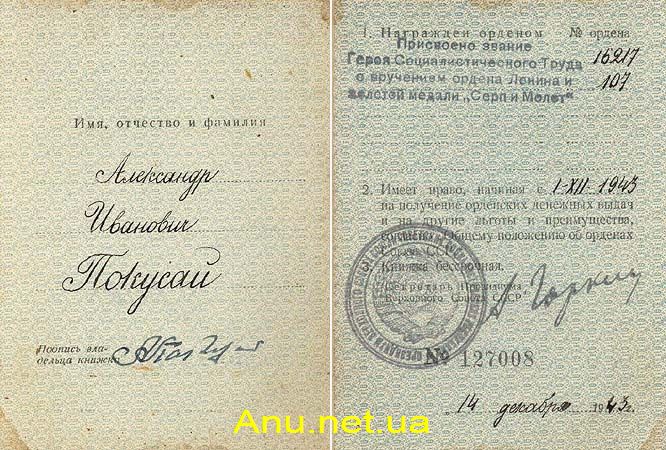 Имя, отчество и фамилия
Александр
Иванович
Покусай
Подпись вла-
дельца книжки
1. Награжден орденом № ордена
Присвоено звание
Героя Социалистического Труда 16217
с вручением ордена Ленина и
золотой медали „Серп и Молот“ 107
2. Имеет право, начиная с 1-XII-1943
на получение орденских денежных выдач
и на другие льготы и преимущества,
согласно Общему положению об орденах
Союза ССР.
3. Книжка бессрочная.
Секретарь Президиума
Верховного Совета СССР
А Горкин
№ 127008
14 декабря 1943 г.
Anu.net.ua